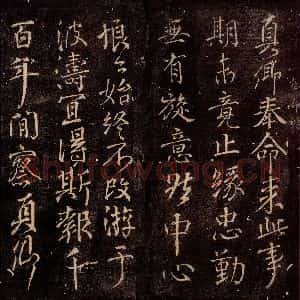 真卿奉命來此事
期未竟止緣忠勤
無有旋意然中心
悢悢始終不改游于
波濤宜得斯報千
百年間察真卿
Shufawang.CN